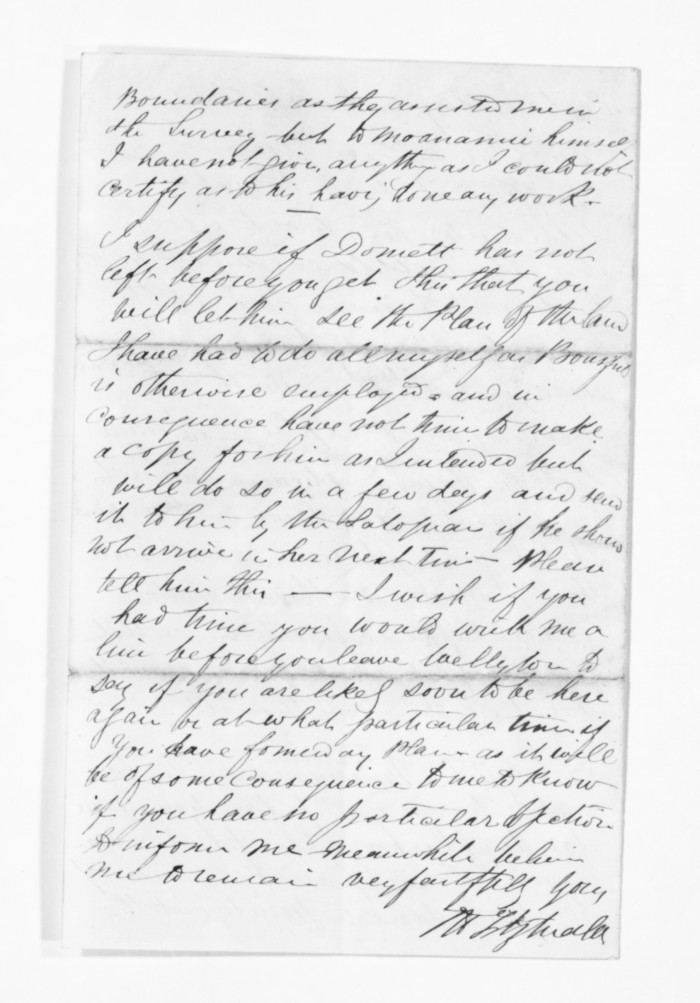 Boundaries as they assisted me in
the Survey but to Moananui himself
I have not given anything as I could not
certify as to his having done any work.
I suppose if Domett has not
left before you get this that you
will let him see the Plan of the land
I have had to do all myself as Bousfield
is otherwise employed and in
consequence have not time to make
a copy for him as I intended but
will do so in a few days and send
it to him by the Salopian if he should
not arrive in her next time Please
tell him this — I wish if you
had time you would write me a
line before you leave Wellington to
say if you are likely soon to be here
again or at what particular time if
you have formed any Plan as it will
be of some consequence to me to know
if you have no particular objection
to inform me meanwhile believe
me to remain very faithfully yours